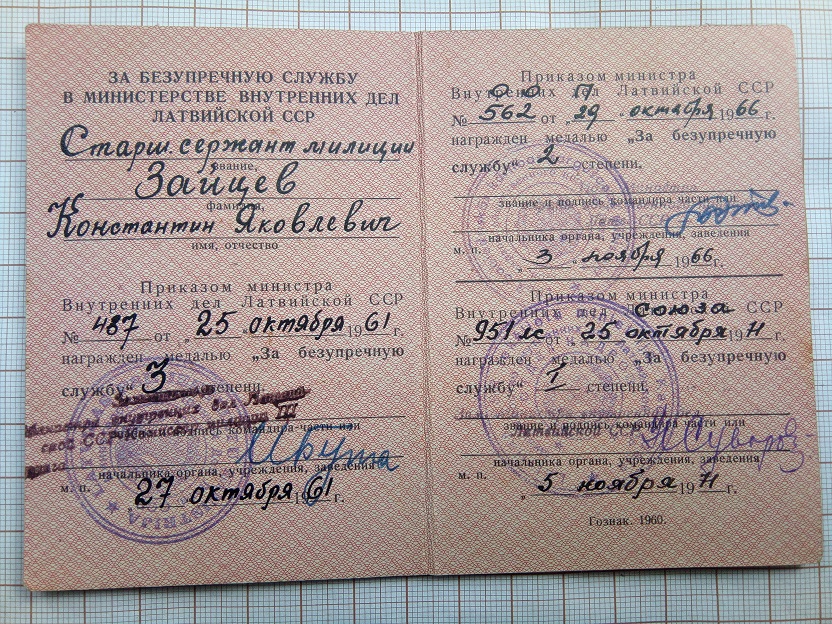 ЗА БЕЗУПРЕЧНУЮ СЛУЖБУ
В МИНИСТЕРСТВЕ ВНУТРЕННИХ ДЕЛ
ЛАТВИЙСКОЙ ССР
Старш. сержант милиции
звание,
Зайцев
фамилия,
Константин Яковлевич
имя, отчество
Приказом министра
Внутренних дел Латвийской ССР
№ 487 от „25 октября 1961 г.
награжден медалью „За безупречную
службу“ 3 степени.
министра внутренних дел
ской ССР комиссар милиции III
ранга
подпись командира части или
начальника органа, учреждения, заведения
м. п.
„27 октября 1961 г.
Приказом министра
Внутренних дел Латвийской ССР
№ 562 от „29 октября 1966 г.
награжден медалью „За безупречную
службу“ 2 степени.
звание и подпись командира части или
начальника органа, учреждения, заведения
м. п.
„3 ноября 1966 г.
Приказом министра
Внутренних дел Союза ССР
№ 951 лс от „25 октября 1971 г.
награжден медалью „За безупречную
службу“ 1 степени.
звание и подпись командира части или
Латвийской ССР
начальника органа, учреждения, заведения
м. п.
„5 ноября 1971 г.
Гознак. 1960.